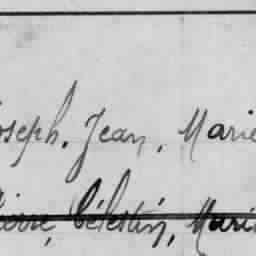 oseph. Jean, Marie
ierre, Célestin, Marie